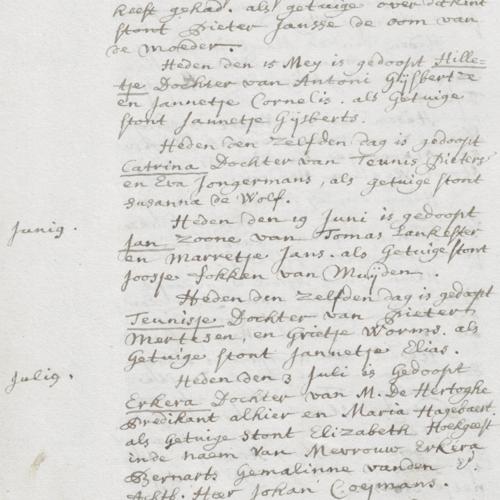 heeft gehad. als getuige over dit kint
stont Pieter Jansse de oom van
de Moeder.
Heden den 15 Mey is gedoopt Hille=
tje Dochter van Antoni Gijsbertze
en Jannetje Cornelis. als Getuige
stont Jannetje Gijsberts.
Heden den Zelfden dag is gedoopt
Catrina Dochter van Teunis Pieters
en Eva Jongermans, als getuige stont
Susanna de Wolf.
Junig.
Heden den 19 Juni is gedoopt
Jan Zoone van Tomas Lankester
en Marretje Jans. als Getuige stont
Joosje Fokken van Muijden.
Heden den Zelfden dag is gedoopt
Teunisje Dochter van Pieter
Mertesen, en Grietje Worms. als
Getuige stont Jannetje Elias.
Julig.
Heden den 3 Juli is Gedoopt
Erkera Dochter van M. De Hertoghe
Predikant alhier en Maria Hagebaert.
als Getuige stont Elizabeth Hoekgeest
inde naem van Mevrouw Erkera
Bernarts Gemalinne vanden
Achtb. Heer Johan Coejmans.